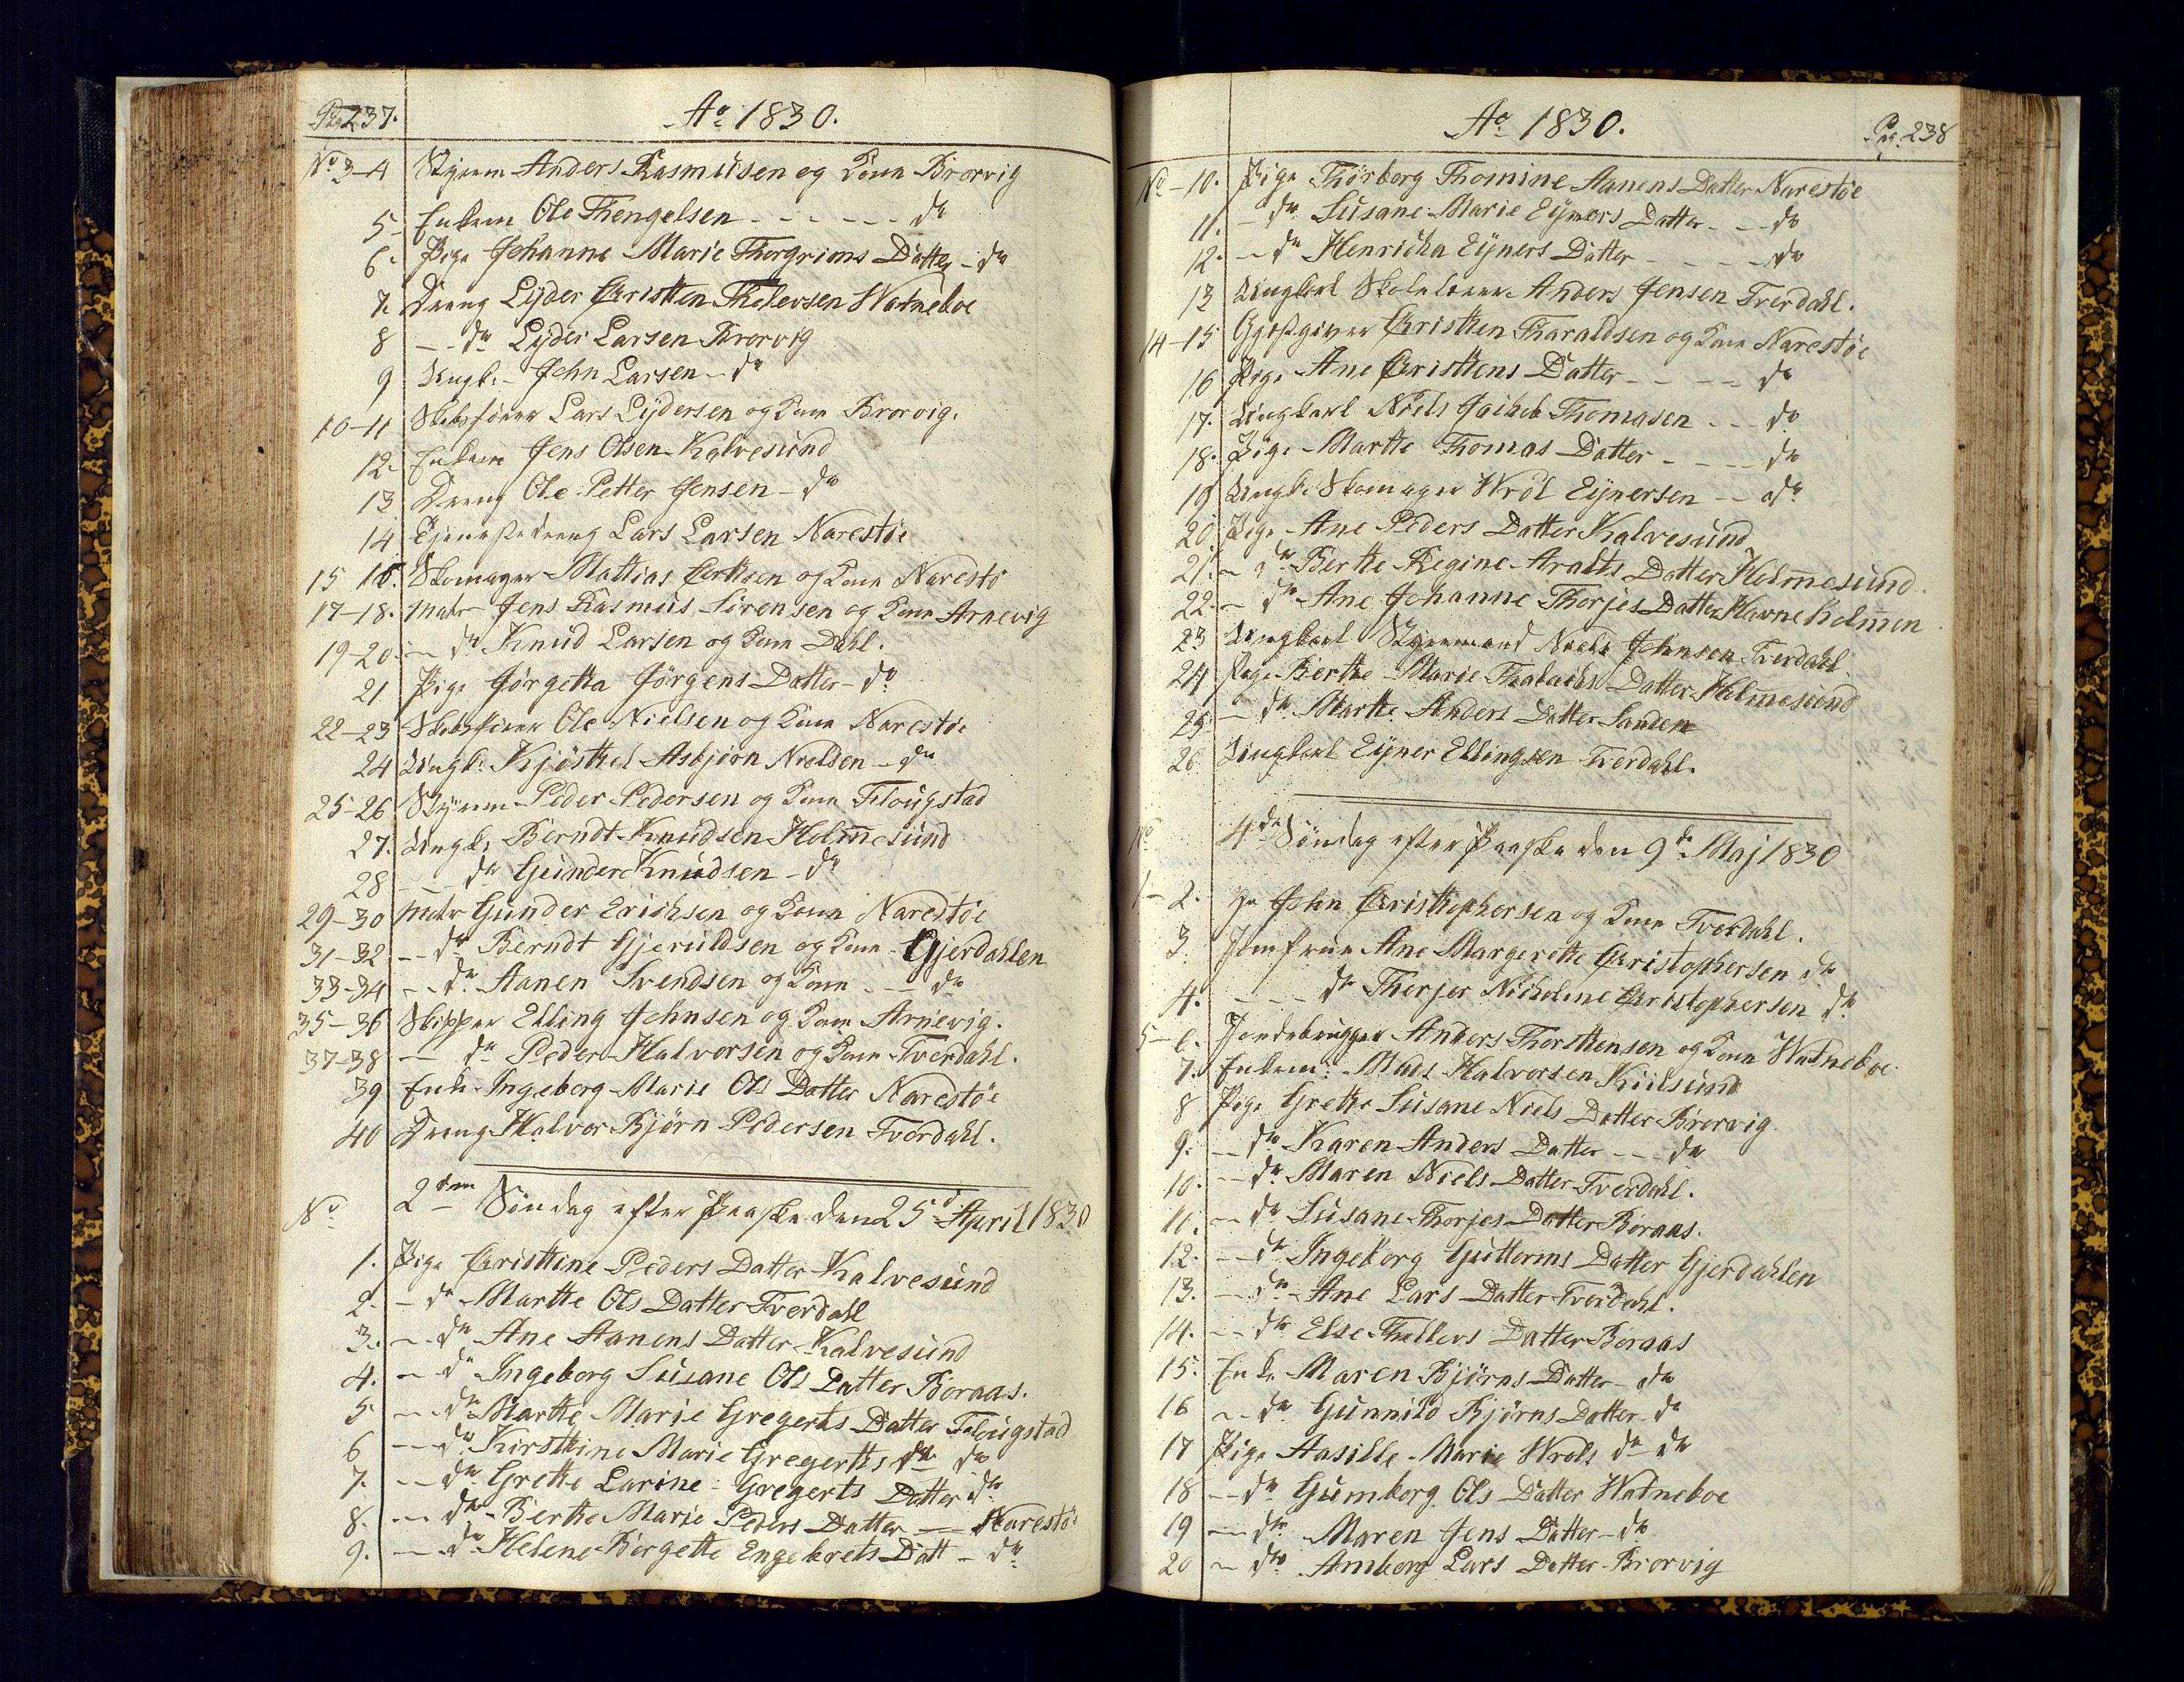 Pag 237.
Ao 1830.
No 3-4 Styrm Anders Rasmusen og Kone Brorvig
5- Enkem Ole Thengelsen - - - - - - do
6- Pige Johanne Marie Thorgrims Datter - do
7. Dreng Lyder Christen Thelevsen Watneboe
8 - - do Lyder Larsen Brorvig
9 Ungk. - John Larsen - do
10-11 Skibsfører Lars Lydersen og Kone Brorvig.
12. Enkem Jens Olsen Kalvesund
13 Dreng Ole Petter Jensen - do
14 Tjenestedreng Lars Larsen Narestøe
15 16. Skomager Mathias Eertsen og Kone Narestø
17-18. Matr Jens Rasmus Sørensen og Kone Arnevig
19-20. - do Knud Larsen og Kone Dahl.
21 Pige Jørgetha Jørgens Datter - do
22-23 Skibsfører Ole Nielsen og Kone Narestøe
24 Ungk: Kjøsthel Asbjørn Nielsen - do
25-26 Styrm Peder Pedersen og Kone Flougstad
27. Ungk: Berndt Knudsen Holmesund
28 - - do Gunder Knudsen - do
29-30 Matr Gunder Erichsen og Kone Narestøe
31-32 - - do Berndt Gjeruldsen og Kone Gjerdahlen
33-34 - - do Aanen Svendsen og Kone - - do
35-36 Skipper Elling Johnsen og Kone Arnevig.
37-38 - do Peder Halvorsen og Kone Tverdahl.
39 Enke Ingeborg Marie Ols Datter Narestøe
40 Dreng Halvor Bjørn Pedersen Tverdahl.
No 2den Søndag efter Paaske den 25d April 1830
1. Pige Christine Peders Datter Kalvesund
2. - do Marthe Ols Datter Tverdahl
3. - - do Ane Aanens Datter Kalvesund
4. - do Ingeborg Susane Ols Datter Boraas.
5. - - do Marthe Marie Gregerts Datter Flougstad
6 - - do Kirsthine Marie Gregerths do do
7. - - do Grethe Larine Gregerts Datter do
8. - - do Berthe Marie Peders Datter - - Narestøe
9. - - do Helene Børgethe Engebrets Datt - do
Ao 1830.
Pag. 238
No - 10. Pige Thorborg Thomine Aanens Datter Narestøe
11. - do Susane Marie Eyners Datter - - do
12. - do Henricha Eyners Datter - - - - do
13 Ungkarl Skolelærer Anders Jensen Tverdahl.
14-15 Gjestgiver Christen Tharaldsen og Kone Narestøe
16 Pige Ane Christhens Datter - - - - do
17. Ungkarl Niels Jacheb Thomasen - - do
18. Pige Marthe Thomas Datter - - - - do
19 Ungk: Skomager Wrol Eynersen - - do
20. Pige Ane Peders Datter Kalvesund
21. - do Berthe Regine Aralts Datter Holmesund.
22. - do Ane Johanne Thorjes Datter Havneholmen
23 Ungkarl Styrmand Niels Johnsen Tverdahl
24 Pige Berthe Marie Datter Holmesund
25- - do Marthe Anders Datter Sanden
26 Ungkarl Eyner Ellingsen Tverdahl.
No 4de Søndag efter Paaske den 9de Maj 1830
1-2. Hr John Christhophersen og Kone Tverdahl.
3. Jomfrue Ane Margerethe Christophersen do
4. - - - do Thorjer Nicholine Christophersen do
5-6. Jordebrugger Anders Thorsthensen og Kone Watneboe.
7. Enkem: Mads Halvorsen Kiilsund
8 Pige Grethe Susane Niels Datter Brorvig
9. - - do Karen Anders Datter - - - do
10. - - do Maren Niels Datter Tverdahl.
11. - - do Susane Thorjes Datter Boraas.
12. - - do Ingeborg Gutterms Datter Gjerdahlen
13. - - do Ane Lars Datter Tverdahl.
14. - - do Else Thellevs Datter Boraas
15. Enke Maren Bjørns Datter - do
16 - - do Gunnild Bjørns Datter - do
17 Pige Aasille Marie Wrols do do
18 - - do Gumborg Ols Datter Watneboe
19 - - do Maren Jens Datter - do
20 - do Amborg Lars Datter Brorvig